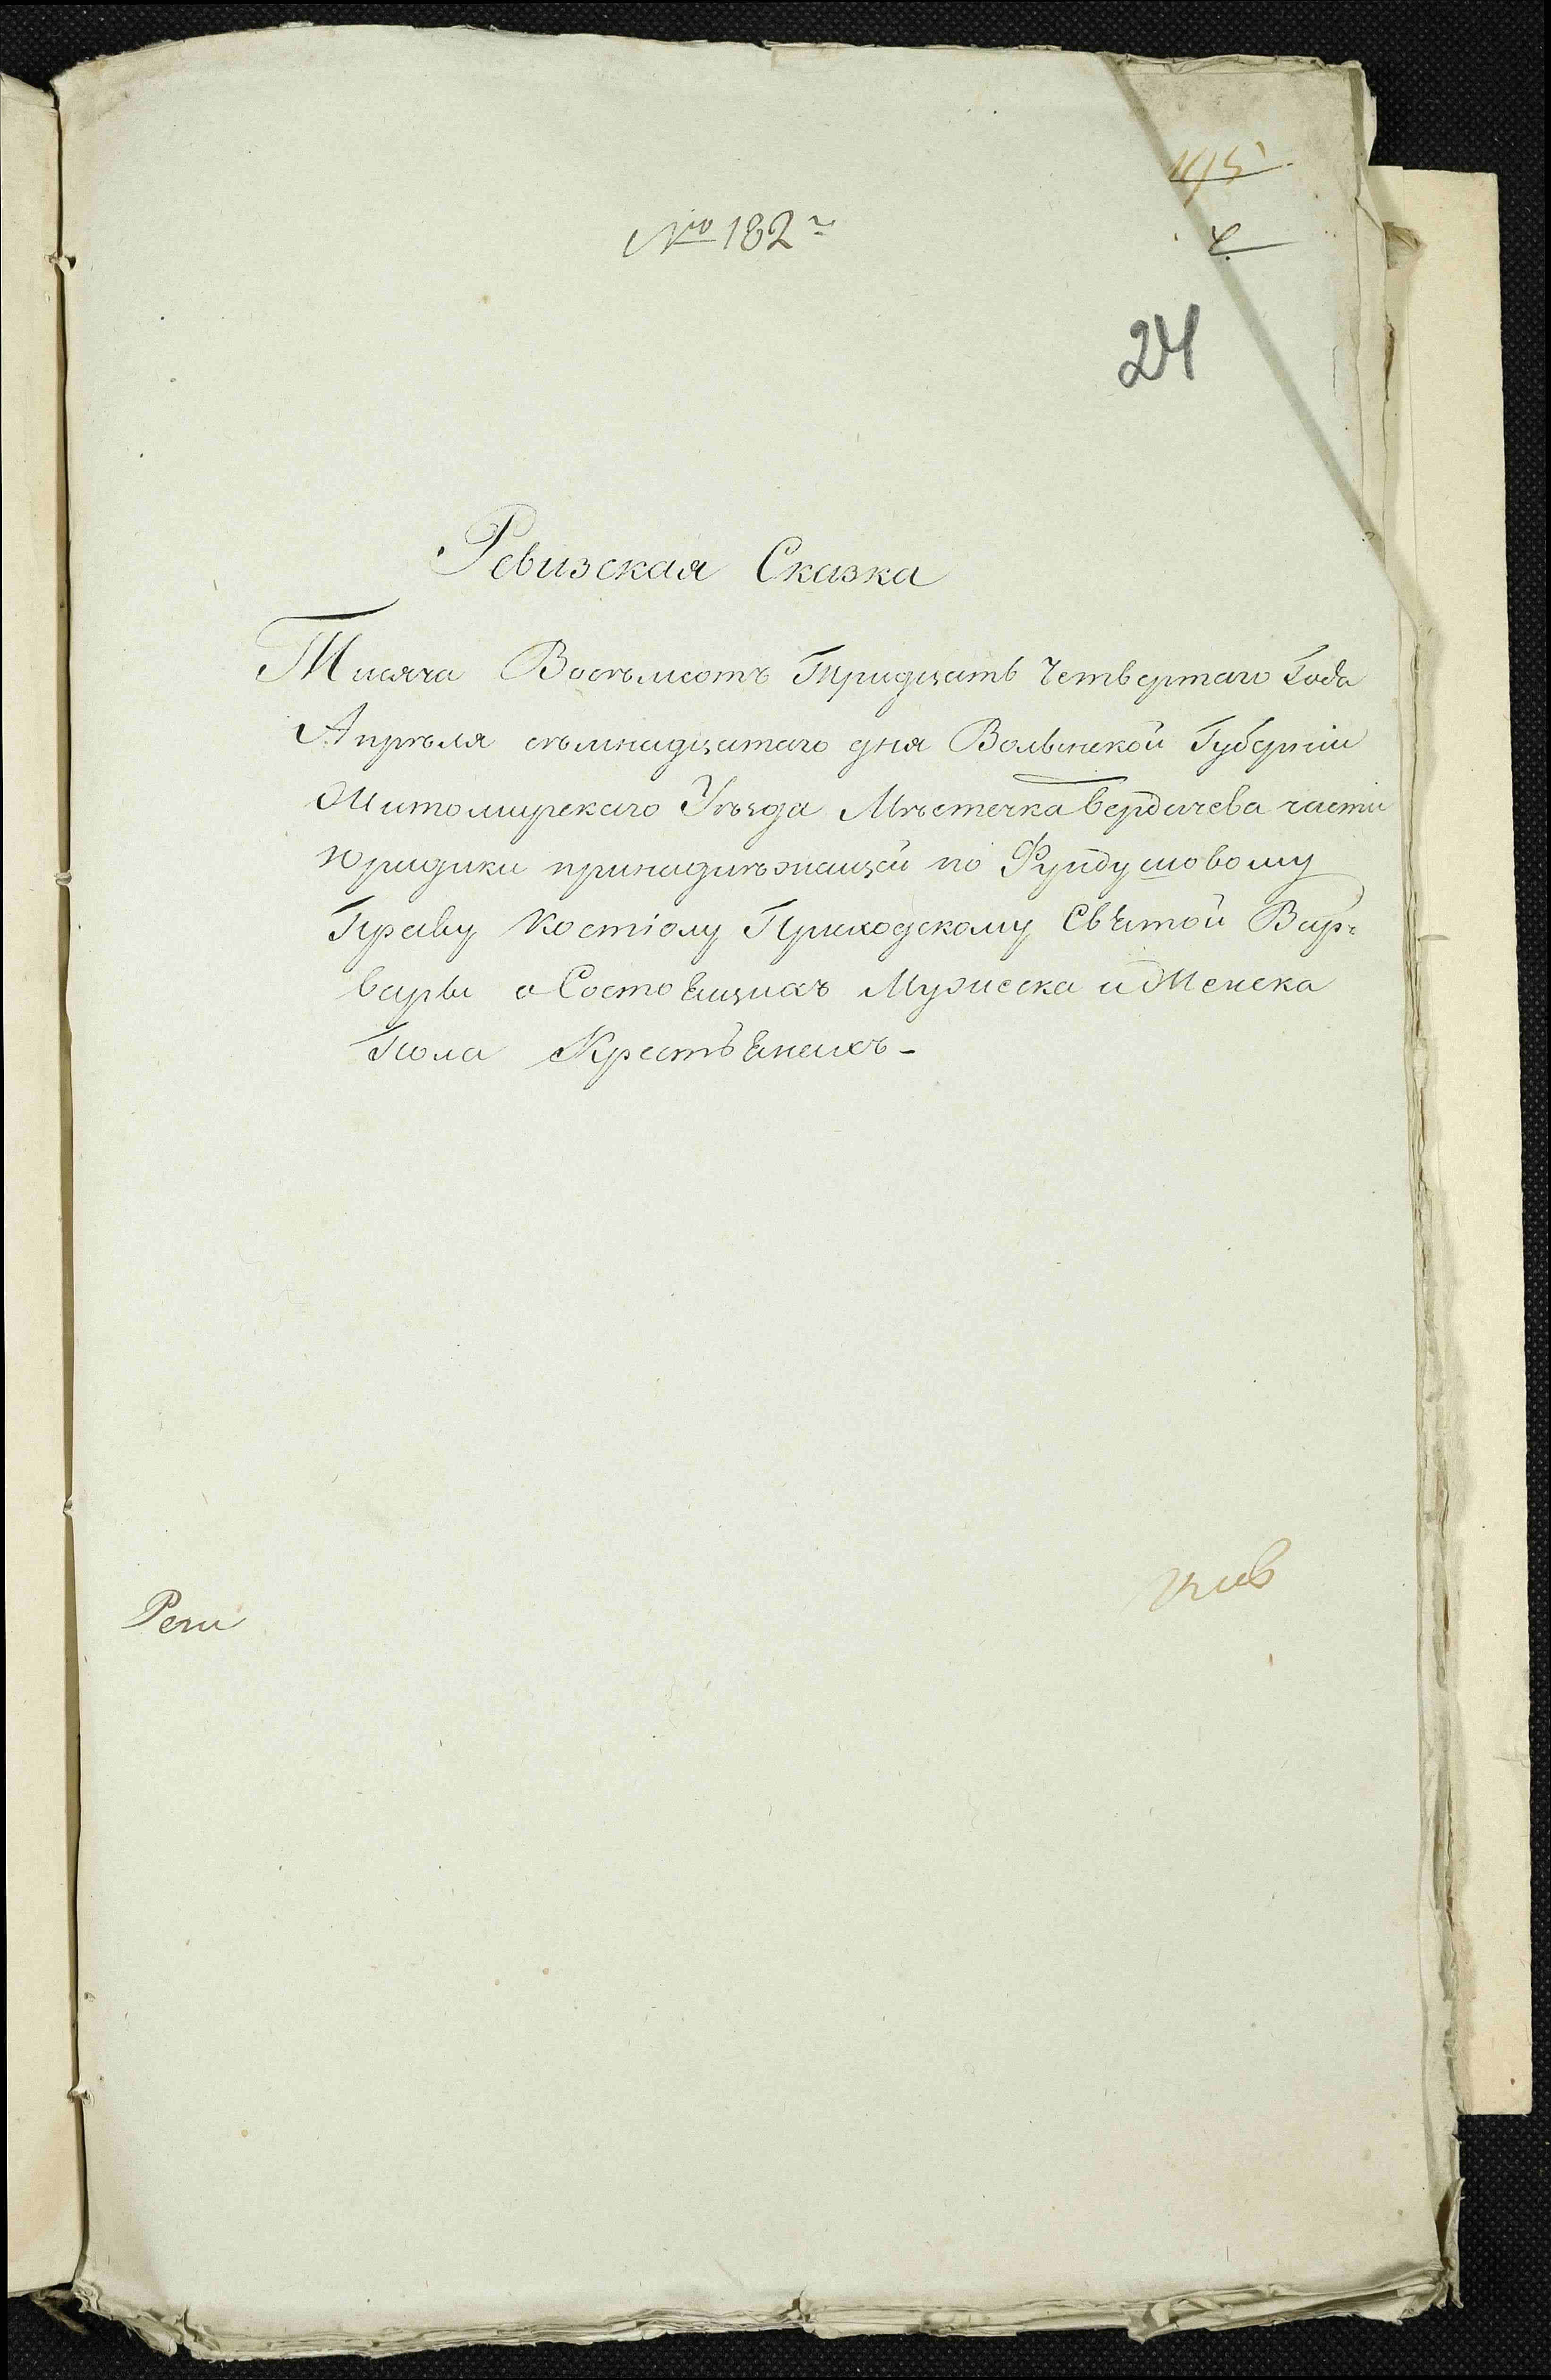 № 182
24
Ревизская Сказка
Тисяча Восѣмсотъ Тридцать Четвертаго Года
Апрѣля сѣмнадцатаго дня Волынской Губерніи
Житомирскаго Уѣзда Мѣстечка Бердичева части
Юридики принадлѣжащей по Фундушовому
Праву Костіолу Приходскому Святой Вар-
вары о Состоящихъ Мужеска и Женска
Пола Крестьянехъ -
Реги